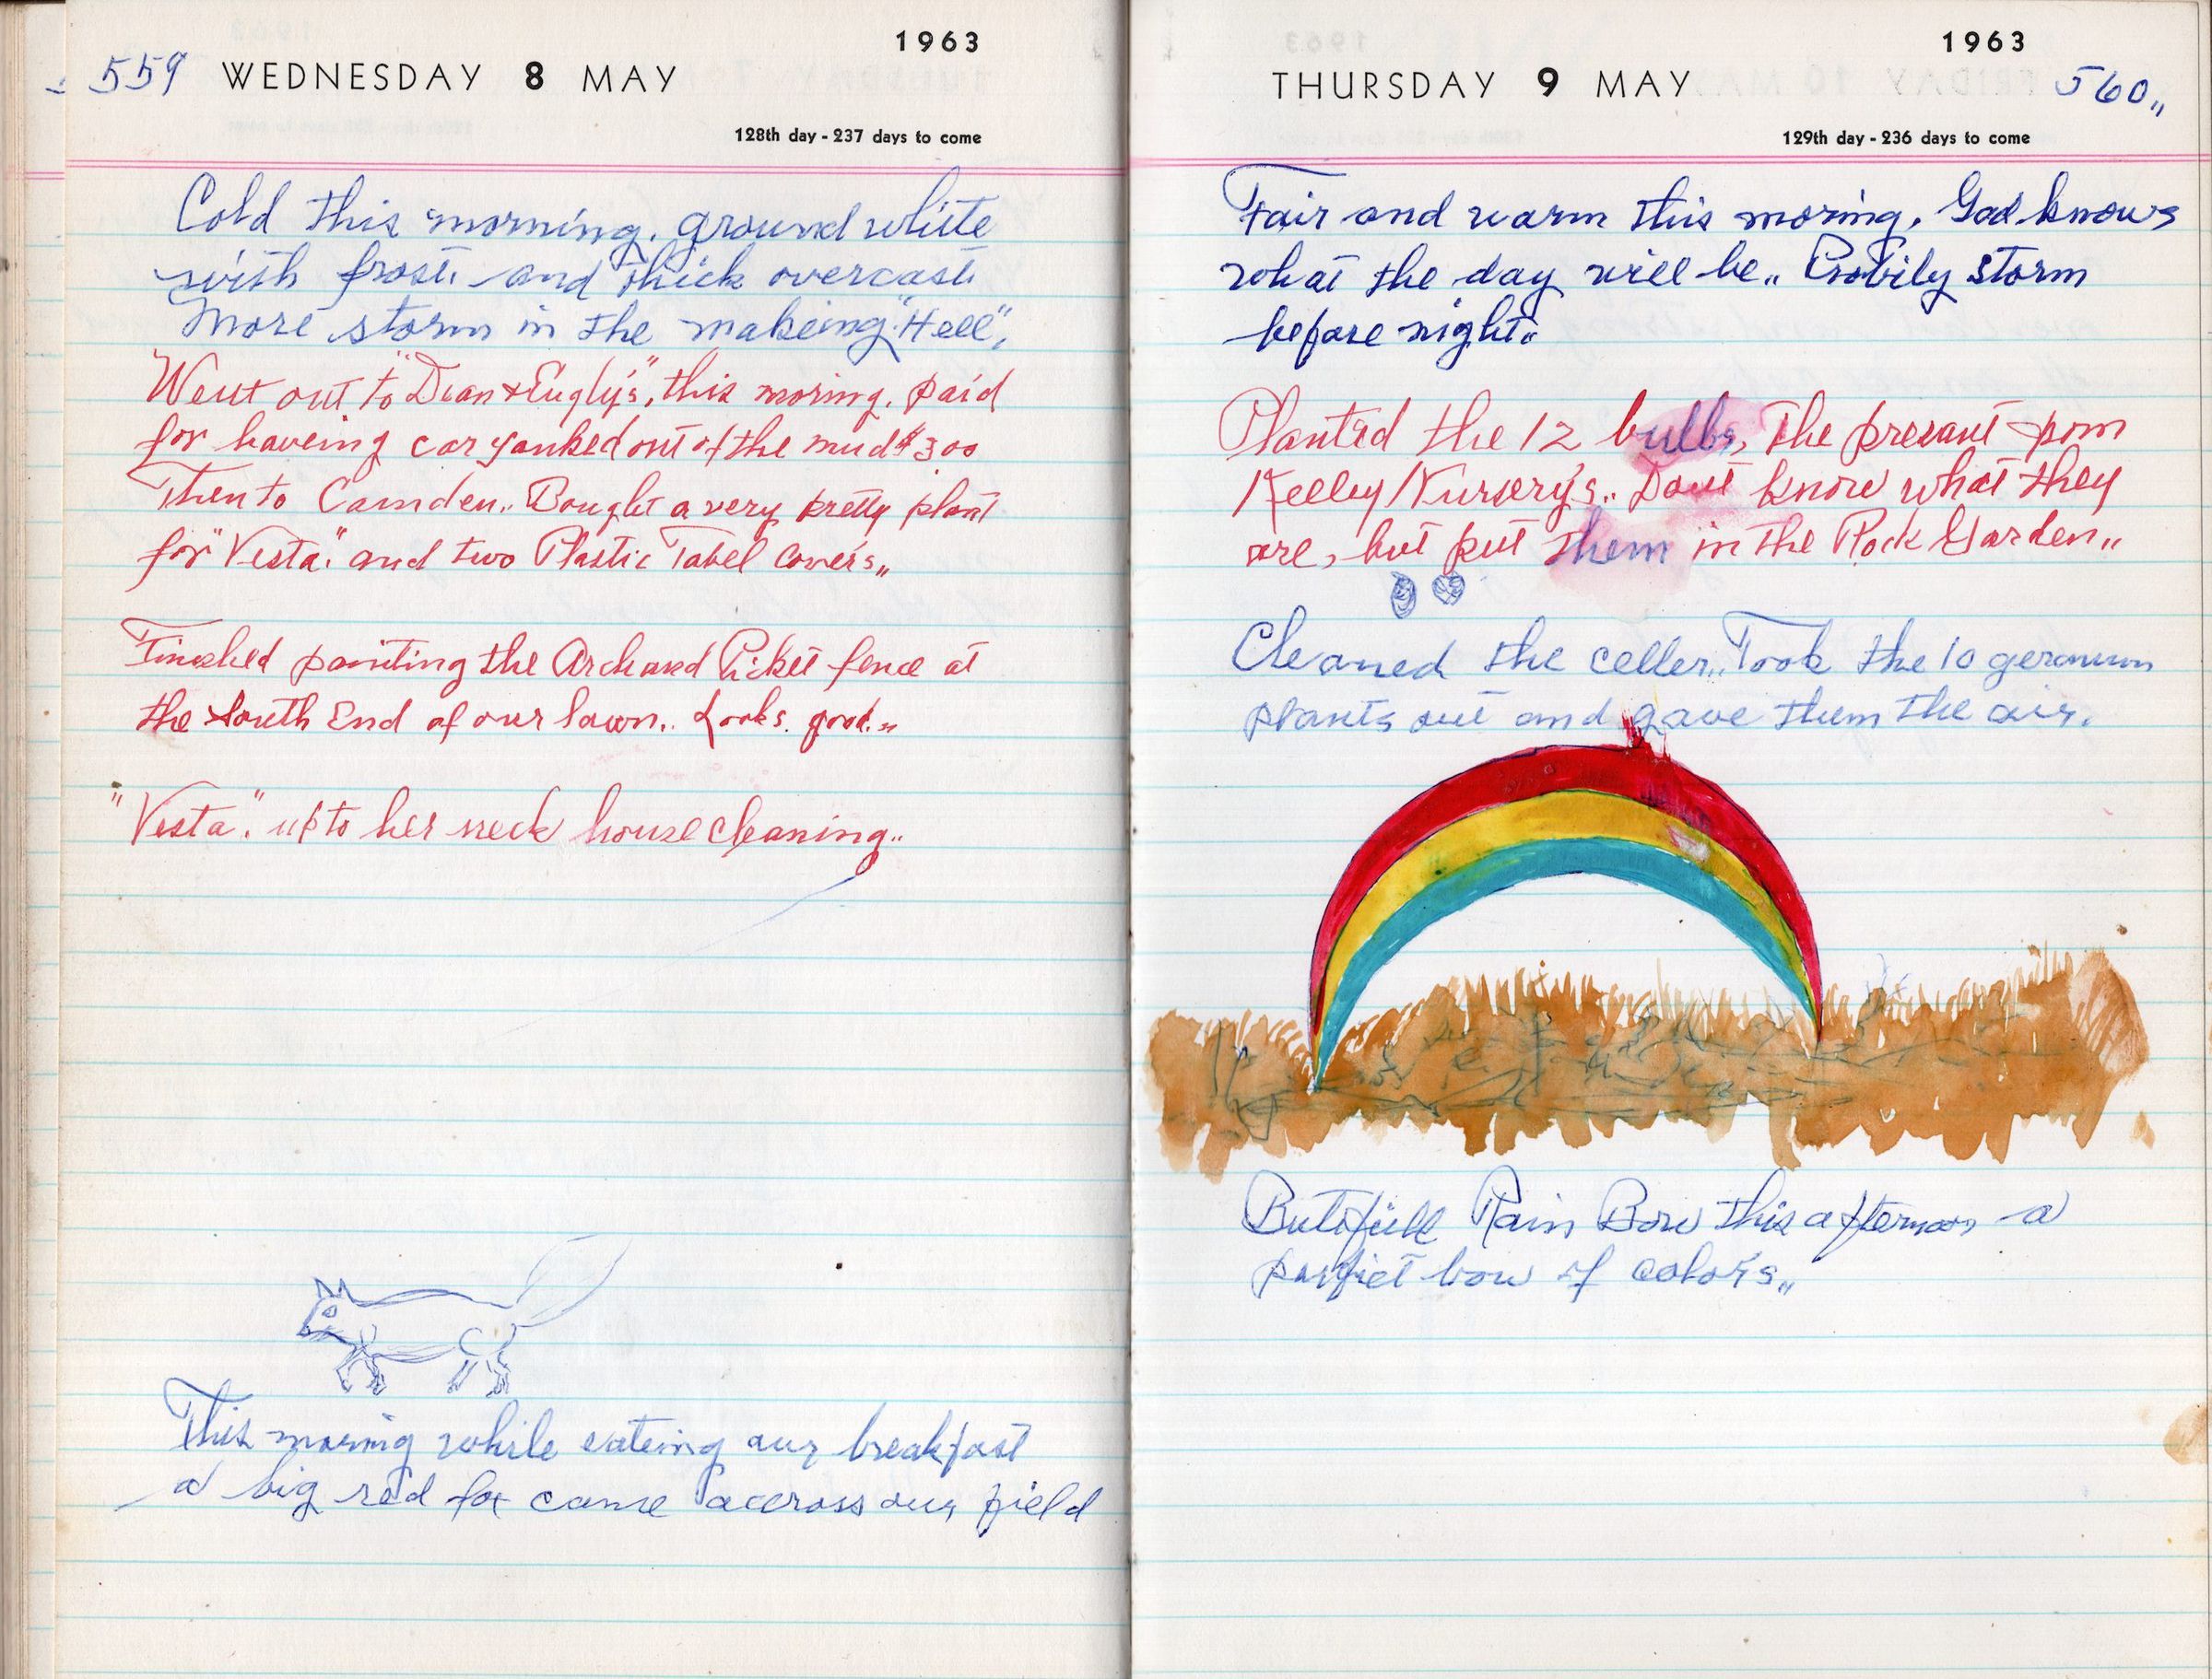 559 WEDNESDAY 8 MAY 1963
128th day - 237 days to come
Cold this morning. ground white
with frost. and thick overcast.
More storm in the makeing "Hell",
Went out to "Dean & Eugly's", this moring. paid
for haveing car yanked out of the mud $3 00
Then to Camden.. Bought a very pretty plant
for "Vesta." and two Plastic Tabel Cover's,,
Finished painting the Arch and Picket fence at
the South End of our lawn.. Looks. good..
"Vesta". up to her neck house cleaning..
This moring while eateing our breakfast
a big red fox came accross our field
THURSDAY 9 MAY 1963 560,,
129th day - 236 days to come
Fair and warm this moring. God knows
what the day will be.. Probily storm
before night..
Planted the 12 bulbs, The presant from
Kelley Nursery's.. Dont know what they
are, but put them in the Rock Garden,,
Cleaned the celler.. Took the 10 geranium
plants out and gave them the air.
Butifull Rain Bow this afternoon a
parfict bow of color's,,